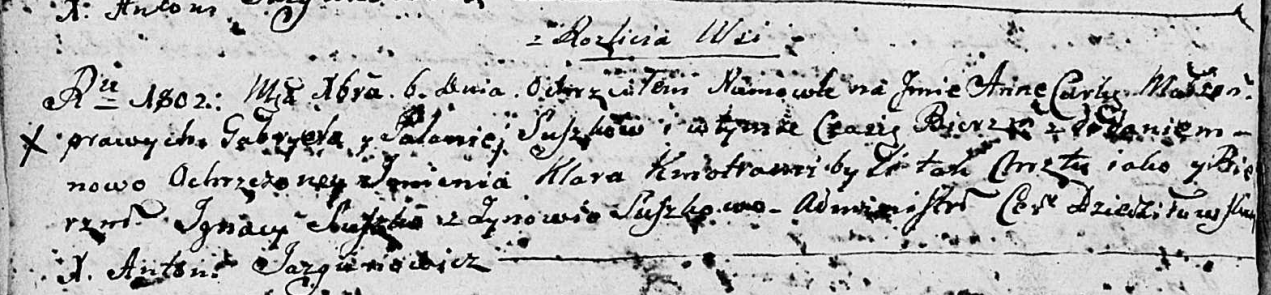 X. Antoni
z Rozlicia Wsi
Ru 1802: Mca Xbra. 6. Dnia. Ochrzciłem Niemowle na Jmie Anne Corke Małżon.
prawych. Gabryela y Palaniej Suszków i w tymże Czasie Bierzm z dodaniem -
nowo Ochrzczoney Jmienia Klara Kmotrami byli tak Chrztu iako y Bie
rzm. Ignacy Suszko z Zynowią Suszkowo - Administr Cer. Dziedziławskiey
X. Antoni Jazgunowicz